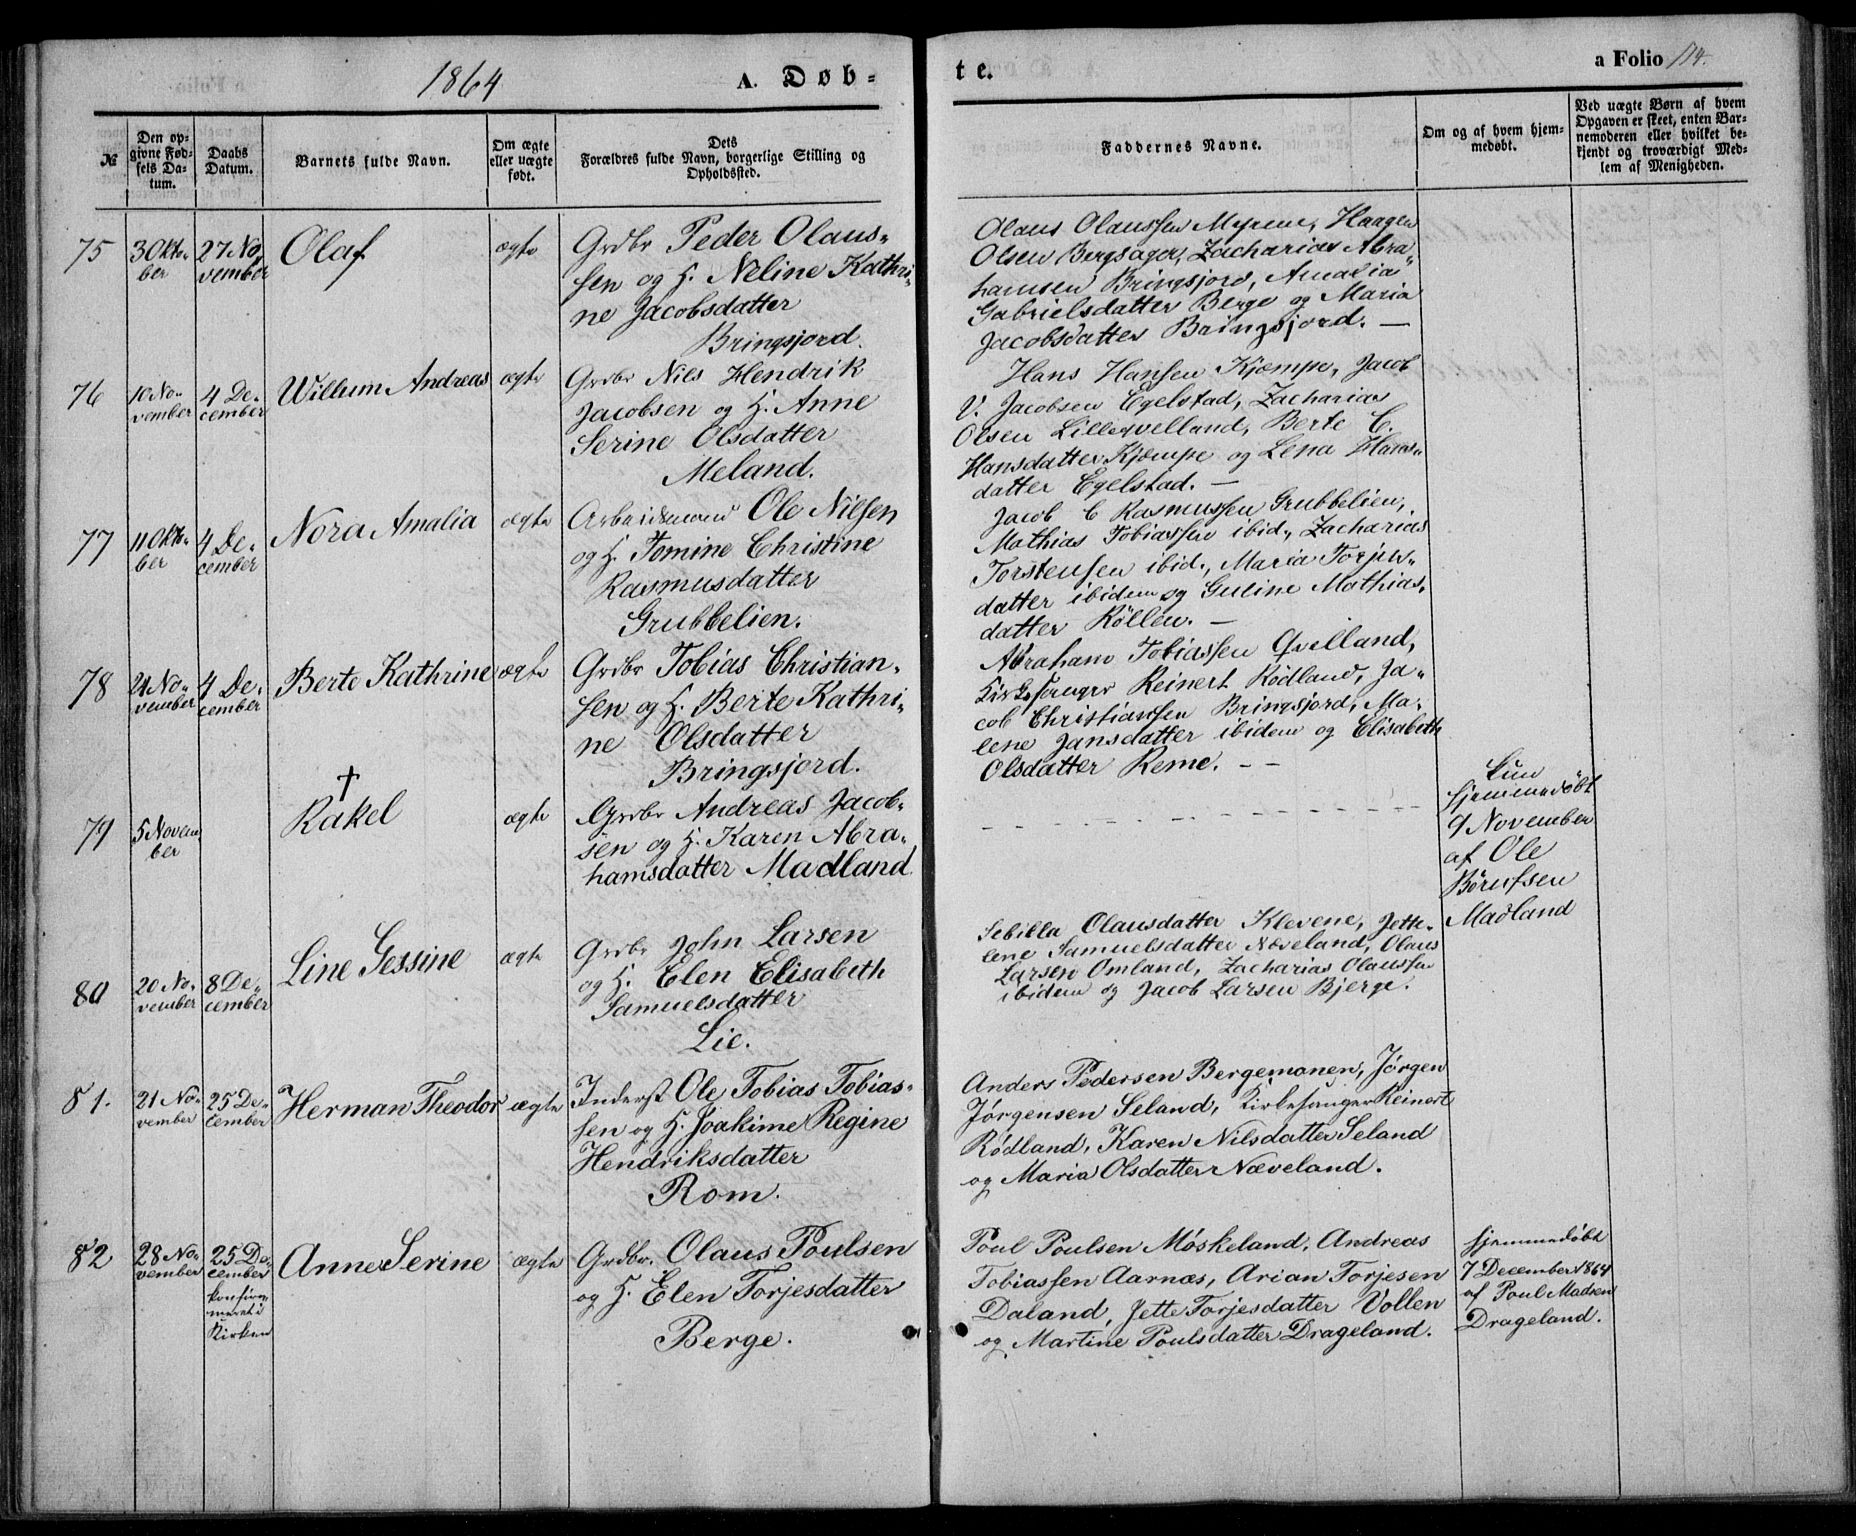 1864
A. Døb-
te.
a Folio 114.
№
Den op-
givne Fød-
sels Da-
tum.
Daabs
Datum.
Barnets fulde Navn.
Om ægte
eller uægte
født.
Dets
Forældres fulde Navn, borgerlige Stilling og
Opholdssted.
Faddernes Navne.
Om og af hvem hjem-
medøbt.
Ved uægte Børn af hvem
Opgaven er skeet, enten Bar-
nemoderen eller hvilket be-
kjendt og troværdigt Med-
lem af Menigheden.
75
3 Okto-
ber
27 No-
vember
Olaf
ægte
Grdbr Peder Olaus-
sen og H. Neline Kathri-
ne Jacobsdatter
Bringsjord.
Olaus Olaussen Myrene, Haagen
Olsen Bergsager, Zacharias Abra-
hamsen Bringsjord, Amalia
Gabrielsdatter Berge og Maria
Jacobsdatter Bringsjord. —
76
10 No-
vember
4 De-
cember
Willum Andreas
ægte
Grdbr Nils Hendrik
Jacobsen og H. Anne
Serine Olsdatter
Meland.
Hans Hansen Kjæmpe, Jacob
V. Jacobsen Egelstad, Zacharias
Olsen Lilleqvelland, Berte C.
Hansdatter Kjæmpe og Lena Hans-
datter Egelstad. —
77
11 Okto-
ber
4 De-
cember
Nora Amalia
ægte
Arbeidsmand Ole Nilsen
og H. Tomine Christine
Rasmusdatter
Grubbelien.
Jacob C Rasmussen Grubbelien,
Mathias Tobiassen ibid., Zacharias
Torstensen ibid., Maria Torjus-
datter ibidem og Guline Mathias-
datter Röllen. —
78
21 No-
vember
4 De-
cember
Berte Kathrine
ægte
Grdbr Tobias Christian-
sen og H. Berte Kathri-
ne Olsdatter
Bringsjord.
Abraham Tobiassen Qvilland,
Kirkesanger Reinert Rödland, Ja-
cob Christianssen Bringsjord, Ma-
lene Jansdatter ibidem og Elisabeth
Olsdatter Reme. - -
79
5 Novem-
ber
†
Rakel
ægte
Grdbr Andreas Jacob-
sen og H. Karen Abra-
hamsdatter Madland.
kun
hjemmedöbt
9 November
af Ole
Börufsen
Madland
80
20 No-
vember
8 De-
cember
Line Gessine
ægte
Grdbr John Larsen
og H. Elen Elisabeth
Samuelsdatter
Lie.
Sebilla Olausdatter Klevene, Jette-
lene Samuelsdatter Næveland, Olaus
Larsen Omland, Zacharias Olaussen
ibidem og Jacob Larsen Bjerge.
81.
21 No-
vember
25 De-
cember
Herman Theodor
ægte
Inderst Ole Tobias Tobias-
sen og H. Joakime Regine
Hendriksdatter
Rom.
Anders Pedersen Bergemonen, Jörgen
Jörgensen Seland, Kirkesanger Reinert
Rødland, Karen Nilsdatter Seland
og Maria Olsdatter Næveland.
82
28 No-
vember
25 De-
cember
konfir-
meret i
Kirken
Anne Serine
ægte
Grdbr. Olaus Poulsen
og H. Elen Torjesdatter
Berge.
Poul Poulsen Møskeland, Andreas
Tobiassen Aarnæs, Arian Torjesen
Daland, Jette Torjesdatter Vollen
og Martine Poulsdatter Drageland.
hjemmedöbt
7 December 1864
af Poul Madsen
Drageland.